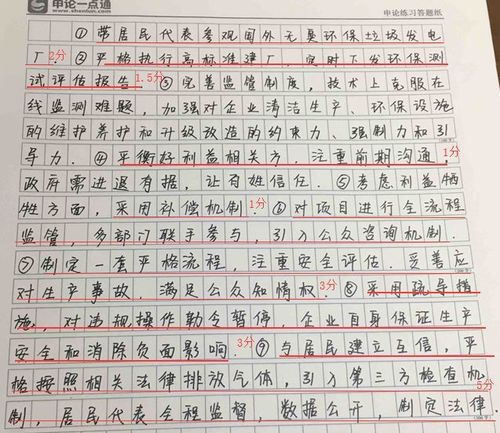 申论一点通
www.shenlun.com
申论练习答题纸
①带居民代表参观国外无臭环保垃圾发电
厂2分②严格执行高标准建厂,定时下发环保测
试评估报告.1.5分③完善监管制度,技术上克服在
线监测难题,加强对企业清洁生产、环保设施
的维护养护和升级改造的约束力、强制力和引
导力.④平衡好利益相关方,注重前期沟通,1分
政府需进退有据,让百姓信任.⑤考虑利益牺
牲方面,采用补偿机制.1分⑥对项目进行全流程
监管,多部门联手参与,引入公众咨询机制.
⑦制定一套严格流程,注重安全评估.妥善应
对生产事故,满足公众知情权.3分⑧采用疏导措
施,对违规操作勒令暂停 企业自身保证生产
安全和消除负面影响.3分⑨与居民建立互信,严
格按照相关法律排放气体,引入第三方检查机5分
制,居民代表全程监督,数据公开,制定法律.